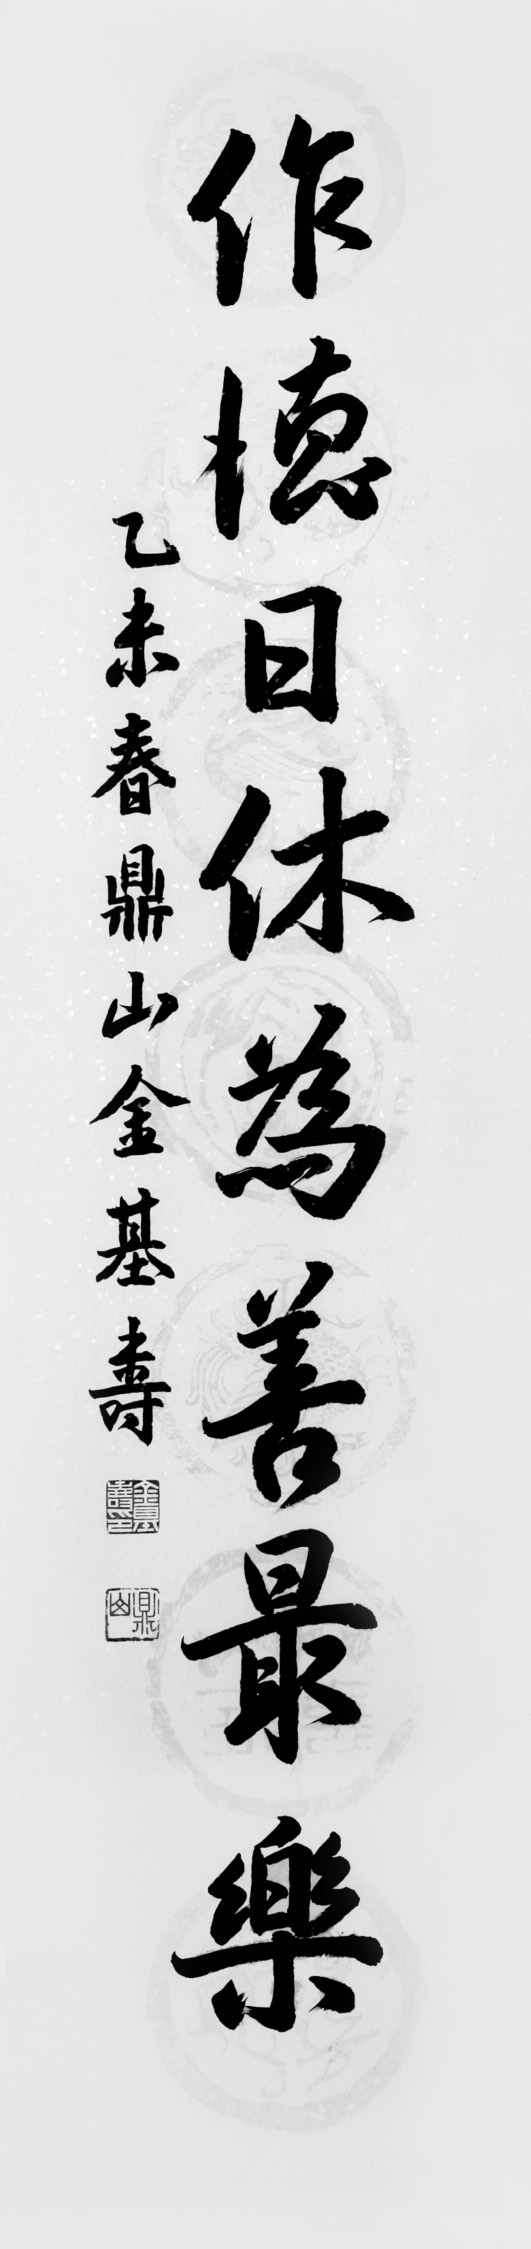 作德日休為善最樂
乙未春鼎山金基壽
金基壽印
鼎山